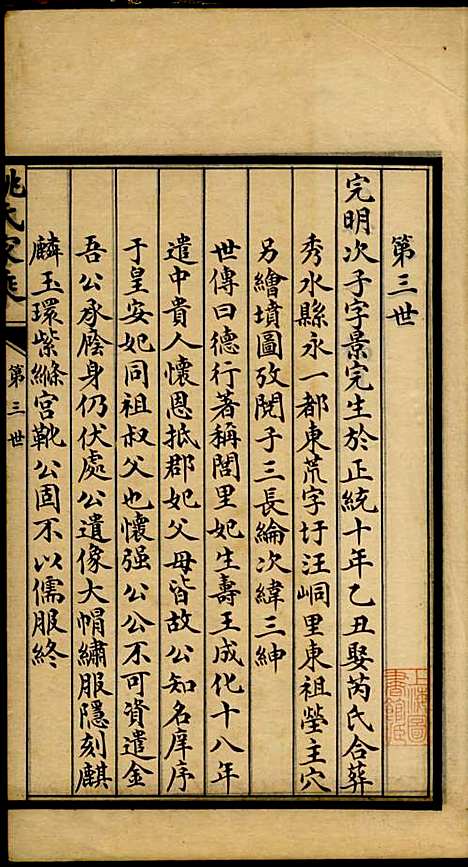 第三世
完明次子字景完生於正統十年乙丑娶芮氏合葬
秀水縣永一都東荒字圩汪峒里東祖塋主穴
另繪墳圖攷閱子三長綸次緯三紳
世傳曰德行著稱閭里妃生壽王成化十八年
遣中貴人懷恩抵郡妃父母皆故公知名庠序
于皇安妃同祖叔父也懷强公公不可資遣金
吾公承廕身仍伏處公遺像大帽繡服隱刻麒
麟玉環紫絛宮靴公固不以儒服終
姚氏家乘
第三世
上海圖書館藏